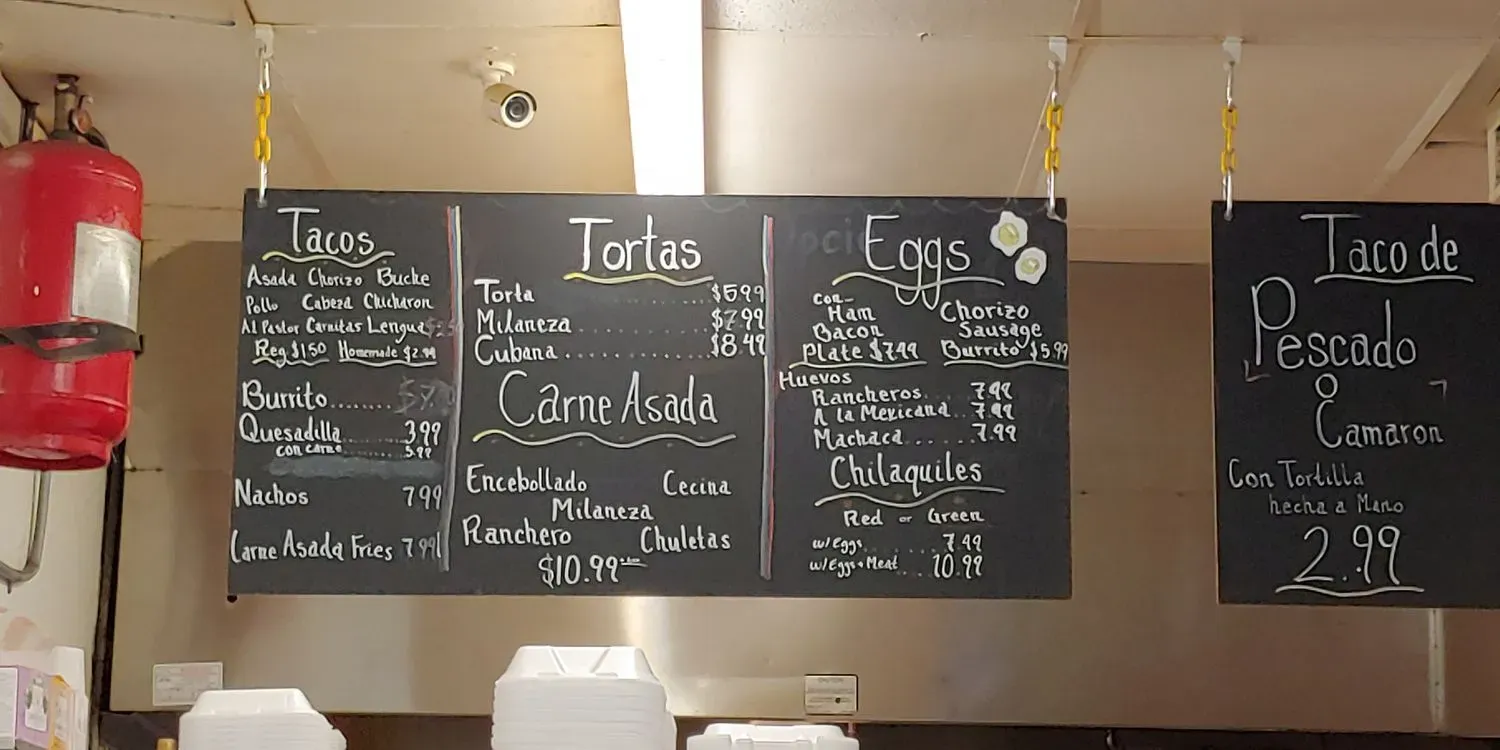 Tacos
Asada Chorizo Buche
Pollo Cabeza Chicharon
Al Pastor Carnitas Lengua
Reg $1.50 Homemade $2.99
Burrito........
Quesadilla........ 3.99
con carne........ 5.99
Nachos 7.99
Carne Asada Fries 7.99
Tortas
Torta ........ $5.99
Milaneza ........ $7.99
Cubana ........ $8.49
Carne Asada
Encebollado Cecina
Milaneza
Ranchero Chuletas
$10.99
Eggs
con-
Ham Chorizo
Bacon Sausage
Plate $7.49 Burrito $5.99
Huevos
Rancheros.. 7.99
A la Mexicana.. 7.99
Machaca....... 7.99
Chilaquiles
Red or Green
w/Eggs........ 7.49
w/Eggs+Meat.... 10.99
Taco de
Pescado
o
Camaron
Con Tortilla
hecha a Mano
2.99